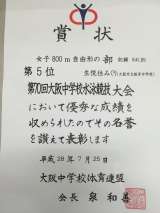 賞状
女子800m自由形の部
第5位
第70回大阪中学校水泳競技大会
において優秀な成績を
収められたのでその名誉
を讃えて表彰します
平成28年7月25日
大阪中学校体育連盟
会長 泉和善